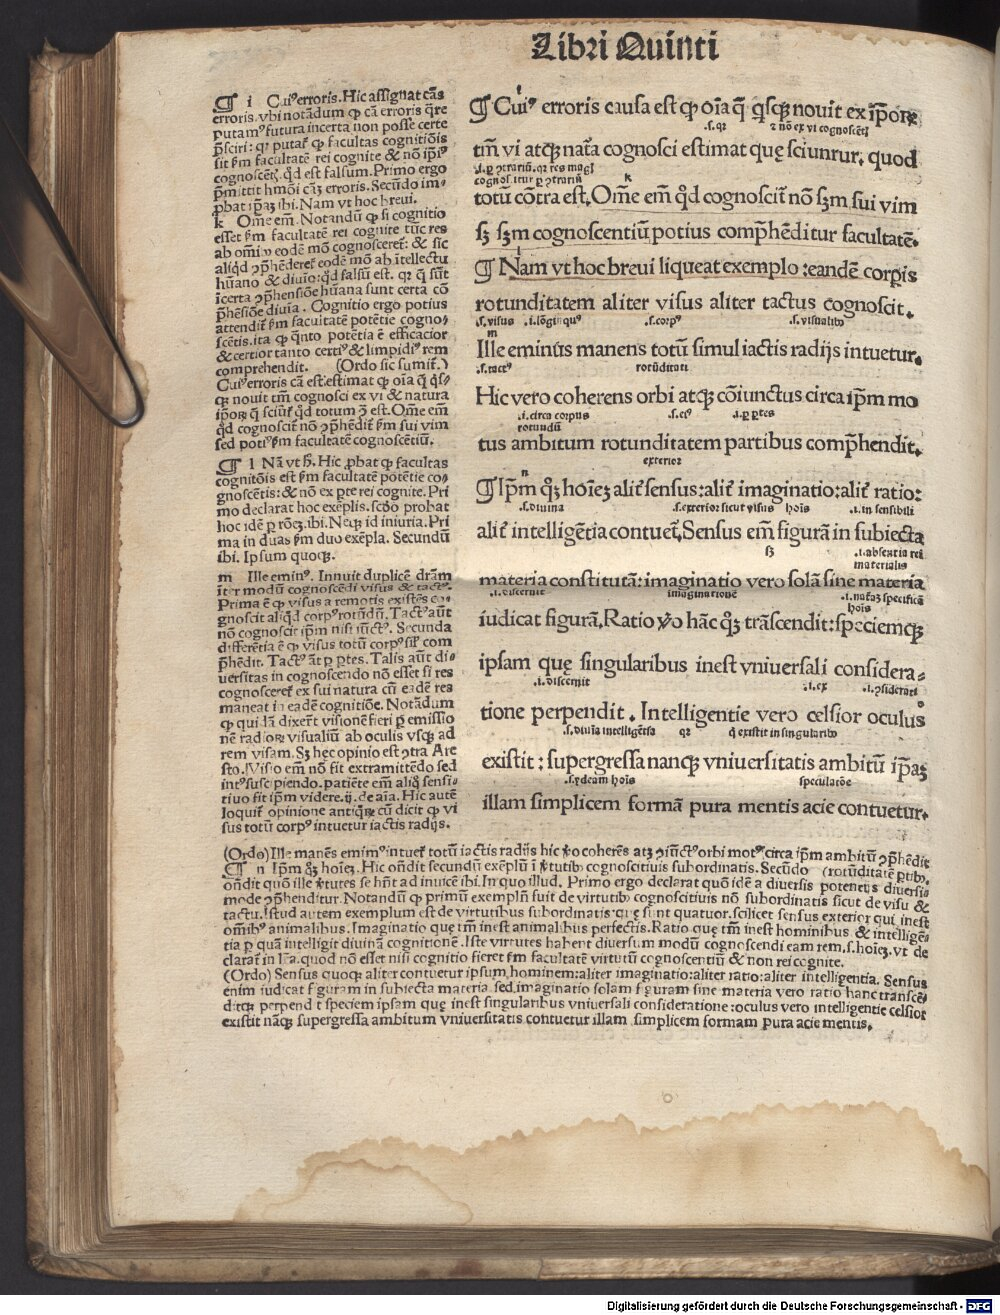 Libri Quinti
¶ i Cuiꝰ erroris. Hic assignat cãs
erroris. vbi notãdum ꝙ cã erroris q̃re
putamꝰ futura incerta non posse certe
p̃sciri: qꝛ putaf ꝙ facultas cognitiõis
sit ẜm facultatẽ rei cognite & nõ ip̃iꝰ
cognoscẽt. qd est falsum. Primo ergo
p̃mittit hmõi cãz erroris. Secũdo im-
ꝓbat ip̃az ibi. Nam vt hoc breui.
k Om̃e em̃. Notandũ ꝙ si cognitio
esset ẜm facultatẽ rei cognite tũc res
ab om̃i eodẽ mõ cognosceret: & sic
aliqd ꝯp̃hẽderet eodẽ mõ ab ĩtellectu
hũano & diuio: qd falsũ est. qꝛ q̃ sũt
ĩcerta ꝯp̃hẽsiõe hũana sunt certa cõ
p̃hẽsiõe diuia. Cognitio ergo potius
attendit ẜm facultatẽ potẽtie cogno-
scẽtis. ita ꝙ q̃nto potẽtia ẽ efficacior
& certior tanto certiꝰ & limpidiꝰ rem
comprehendit. (Ordo sic sumit.)
Cuiꝰ erroris cã est: estimat ꝙ oĩa q̃ q̃s-
qꝫ nouit tm̃ cognosci ex vi & natura
ip̃oꝝ q̃ sciũt qd totum ꝯ̃ est. Om̃e em̃
qd cognoscit nõ ꝯp̃hẽdit ẜm sui vim
sed potiꝰ ẜm facultatẽ cognoscẽtiũ.
¶ l Nã vt h̃. Hic ꝓbat ꝙ facultas
cognitõis est ẜm facultatẽ potẽtie co-
gnoscẽtis: & nõ ex ꝑte rei cognite. Pri
mo declarat hoc exẽplis. scdo probat
hoc idẽ ꝑ rõez. ibi. Neqꝫ id iniuria. Pri
ma in duas ẜm duo exẽpla. Secundũ
ibi. Ipsum quoqꝫ.
m Ille eminꝰ. Innuit duplicẽ dr̃am
ĩter modũ cognoscẽdi visus & tactꝰ.
Prima ẽ ꝙ visus a remotis existẽs co-
gnoscit aliqd corpꝰ rotũdũ. Tactꝰ aũt
nõ cognoscit ip̃m nisi iũctꝰ. Secunda
differẽtia ẽ ꝙ visus totũ corpꝰ sil̃ com
p̃hẽdit. Tactꝰ ãt ꝑ ꝑtes. Talis aũt di-
uersitas in cognoscendo nõ esset si res
cognosceret ex sui natura cũ eadẽ res
maneat ĩ eadẽ cognitiõe. Notãdum
ꝙ quidã dixert visionẽ fieri ꝑ emissio
nẽ radioꝝ visualiũ ab oculis vsqꝫ ad
rem visam. Sꝫ hec opinio est ꝯtra Are
sto. Visio em̃ nõ fit extramittẽdo sed
intꝰ suscipiendo. patiẽte em̃ aliq̃ sensi-
tiuo fit ip̃m videre. ij. de aĩa. Hic autẽ
loquit opinione antiq̃ꝝ cũ dicit ꝙ vi
sus totũ corpꝰ intuetur iactis radijs.
¶ Cuiꝰ erroris causa est ꝙ oĩa q̃ q̃sqꝫ nouit ex ip̃oꝝ
.s. qꝛ ꝛ nõ ex vi cognoscẽtꝭ
tm̃ vi atqꝫ nat̃a cognosci estimat quę sciunrur. quod
.i. ꝑ ꝯtrariũ. qꝛ res magꝭ
cognoscitur ꝑ ꝯtrariũ k
totũ cõtra est. Om̃e em̃ qd cognoscit nõ ẜm sui vim
sꝫ ẜm cognoscentiũ potius comp̃hẽditur facultatẽ.
l
¶ Nam vt hoc breui liqueat exemplo: eandẽ corꝑis
rotunditatem aliter visus aliter tactus cognoscit.
.s. visus .i. lõginquꝰ .s. corpꝰ .s. visualibꝰ
m
Ille eminus manens totũ simul iactis radijs intuetur.
.s. tactꝰ rotũditati
Hic vero coherens orbi atqꝫ cõiunctus circa ip̃m mo
.i. circa corpus .s. eiꝰ .i. ꝑ ꝑtes
rotundũ
tus ambitum rotunditatem partibus comp̃hendit.
exterior
n
¶ Ip̃m qꝫ hoĩez alit̃ sensus: alit̃ imaginatio: alit̃ ratio:
.s. diuina .s. exterior sicut visus hoĩs .i. in sensibili
alit̃ intelligẽtia contuet. Sensus em̃ figurã in subiecta
sꝫ .i. absentia rei
materialis
materia constitutã: imaginatio vero solã sine materia
.i. discernit imaginationẽ .i. naturaꝫ specificã
hoĩs
iudicat figurã. Ratio ꝟo hãc qꝫ trãscendit: speciemqꝫ
ipsam quę singularibus inest vniuersali considera-
.i. discernit .i. ex .i. ꝯsiderati
tione perpendit. Intelligentie vero celsior oculus
.s. diuia intelligẽtia qꝛ q̃ existit in singularibꝰ
existit: supergressa nanqꝫ vniuersitatis ambitũ ip̃aꝫ
.s. ydeam hoĩs speculatõe
illam simplicem formã pura mentis acie contuetur.
(Ordo) Ille manẽs eminꝰ intuet totũ iactis radijs hic ꝟo coherẽs atqꝫ ꝯiũctꝰ orbi motꝰ circa ip̃m ambitũ ꝯp̃hẽdit
¶ n Ip̃m qꝫ hoĩez. Hic oñdit secundũ exẽplũ ĩ ꝟtutibꝰ cognoscitiuis subordinatis. Secũdo (rotũditatẽ ꝑtibꝰ.
oñdit quõ ille ꝟtutes se hñt ad inuicẽ ibi. In quo illud. Primo ergo declarat quõ idẽ a diuersis potentijs diuersis
mode ꝯp̃henditur. Notandũ ꝙ primũ exemplũ fuit de virtutibꝰ cognoscitiuis nõ subordinatis sicut de visu &
tactu. Istud autem exemplum est de virtutibus subordinatis: quę sunt quatuor. scilicet sensus exterior qui inest
om̃ibꝰ animalibus. Imaginatio quę tm̃ inest animalibus perfectis. Ratio quę tm̃ inest hominibus & intelligẽ-
tia ꝑ quã intelligit diuinã cognitionẽ. Iste virtutes habent diuersum modũ cognoscendi eam rem. s. hoĩez. vt de
clarat in l̃ra. quod nõ esset nisi cognitio fieret ẜm facultatẽ virtutũ cognoscentiũ & non rei cognite.
(Ordo) Sensus quoqꝫ aliter contuetur ipsum hominem: aliter imaginatio: aliter ratio: aliter intelligentia. Sensus
enim iudicat figuram in subiecta materia sed imaginatio solam figuram sine materia vero ratio hanc transcẽ-
ditqꝫ perpendit speciem ipsam quę inest singularibus vniuersali consideratione: oculus vero intelligentie celsior
existit nãqꝫ supergressa ambitum vniuersitatis contuetur illam simplicem formam pura acie mentis.
Digitalisierung gefördert durch die Deutsche Forschungsgemeinschaft - DFG